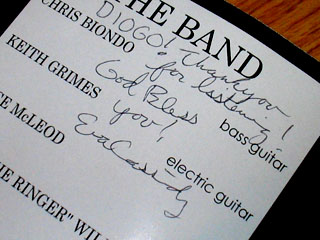 THE BAND
CHRIS BIONDO
DIOGO! Thank you
for listening!
God Bless
you!
bass guitar
KEITH GRIMES
Eva Cassidy
electric guitar
McLEOD
RINGER"